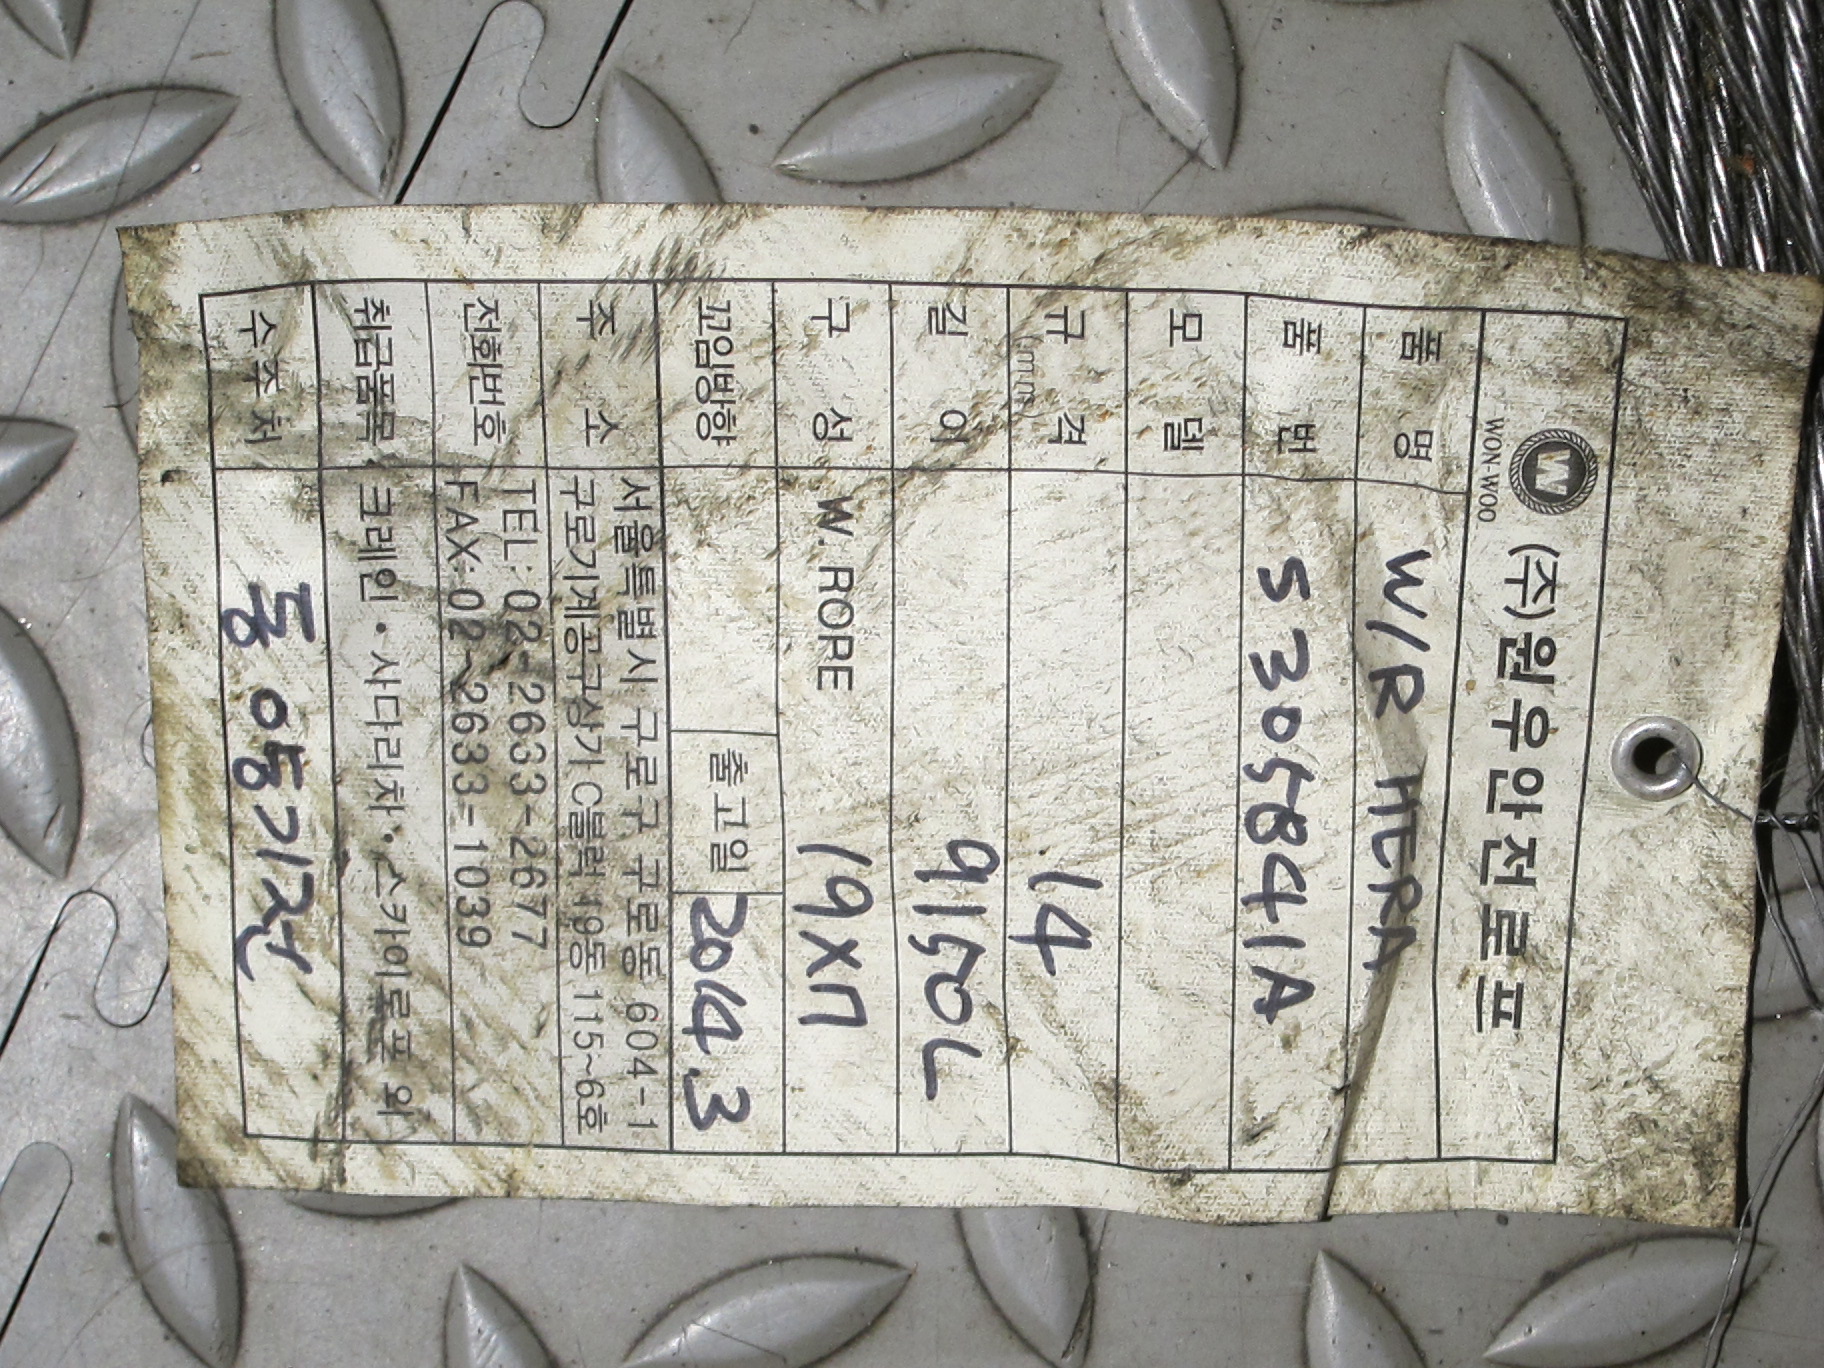 W
WON-WOO
(주)원우안전로프
품 명 W/R HERA
품 번 S305841A
모 델
규 격 14
(mm)
길 이 9150L
구 성 W. RORE 19X7
꼬임방향 출고일 2014.3
주 소 서울특별시 구로구 구로동 604-1
구로기계공구상가 C블럭 19동 115~6호
전화번호 TEL: 02-2633-2677
FAX: 02-2633-1039
취급품목 크레인·사다리차·스카이로프 외
수주처 동양기전